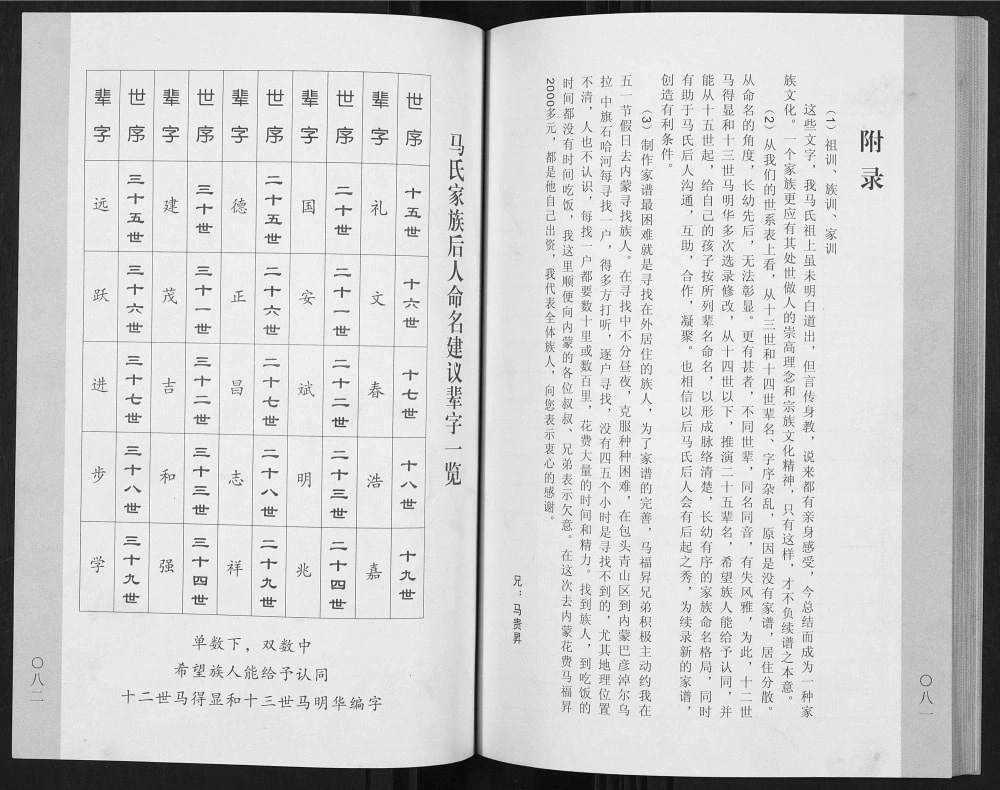 附录
（1）祖训、族训、家训
这些文字，我马氏祖上虽未明白道出，但言传身教，说来都有亲身感受，今总结而成为一种家
族文化。一个家族更应有其处世做人的崇高理念和宗族文化精神，只有这样，才不负续谱之本意。
（2）从我们的世系表上看，从十三世和十四世辈名、字序杂乱，原因是没有家谱，居住分散。
从命名的角度，长幼先后，无法彰显。更有甚者，不同世辈，同名同音，有失风雅，为此，十二世
马得显和十三世马明华多次选录修改，从十四世以下，推演二十五辈名，希望族人能给予认同，并
能从十五世起，给自己的孩子按所列辈名命名，以形成脉络清楚，长幼有序的家族命名格局，同时
有助于马氏后人沟通，互助，合作，凝聚。也相信以后马氏后人会有后起之秀，为续录新的家谱，
创造有利条件。
（3）制作家谱最困难就是寻找在外居住的族人，为了家谱的完善，马福昇兄弟积极主动约我在
五一节假日去内蒙寻找族人。在寻找中不分昼夜，克服种种困难，在包头青山区到内蒙巴彦淖尔乌
拉 中旗石哈河每寻找一户，得多方打听，逐户寻找，没有四五个小时是寻找不到的，尤其地理位置
不清，人也不认识，每找一户都要数十里或数百里，花费大量的时间和精力。找到族人，到吃饭的
时间都没有时间吃饭，我这里顺便向内蒙的各位叔叔、兄弟表示欠意。在这次去内蒙花费马福昇
2000多元，都是他自己出资，我代表全体族人，向您表示衷心的感谢。
兄：马贵昇
〇八一
马氏家族后人命名建议辈字一览
世序 十五世 十六世 十七世 十八世 十九世
辈字 礼 文 春 浩 嘉
世序 二十世 二十一世 二十二世 二十三世 二十四世
辈字 国 安 斌 明 兆
世序 二十五世 二十六世 二十七世 二十八世 二十九世
辈字 德 正 昌 志 祥
世序 三十世 三十一世 三十二世 三十三世 三十四世
辈字 建 茂 吉 和 强
世序 三十五世 三十六世 三十七世 三十八世 三十九世
辈字 远 跃 进 步 学
单数下，双数中
希望族人能给予认同
十二世马得显和十三世马明华编字
〇八二